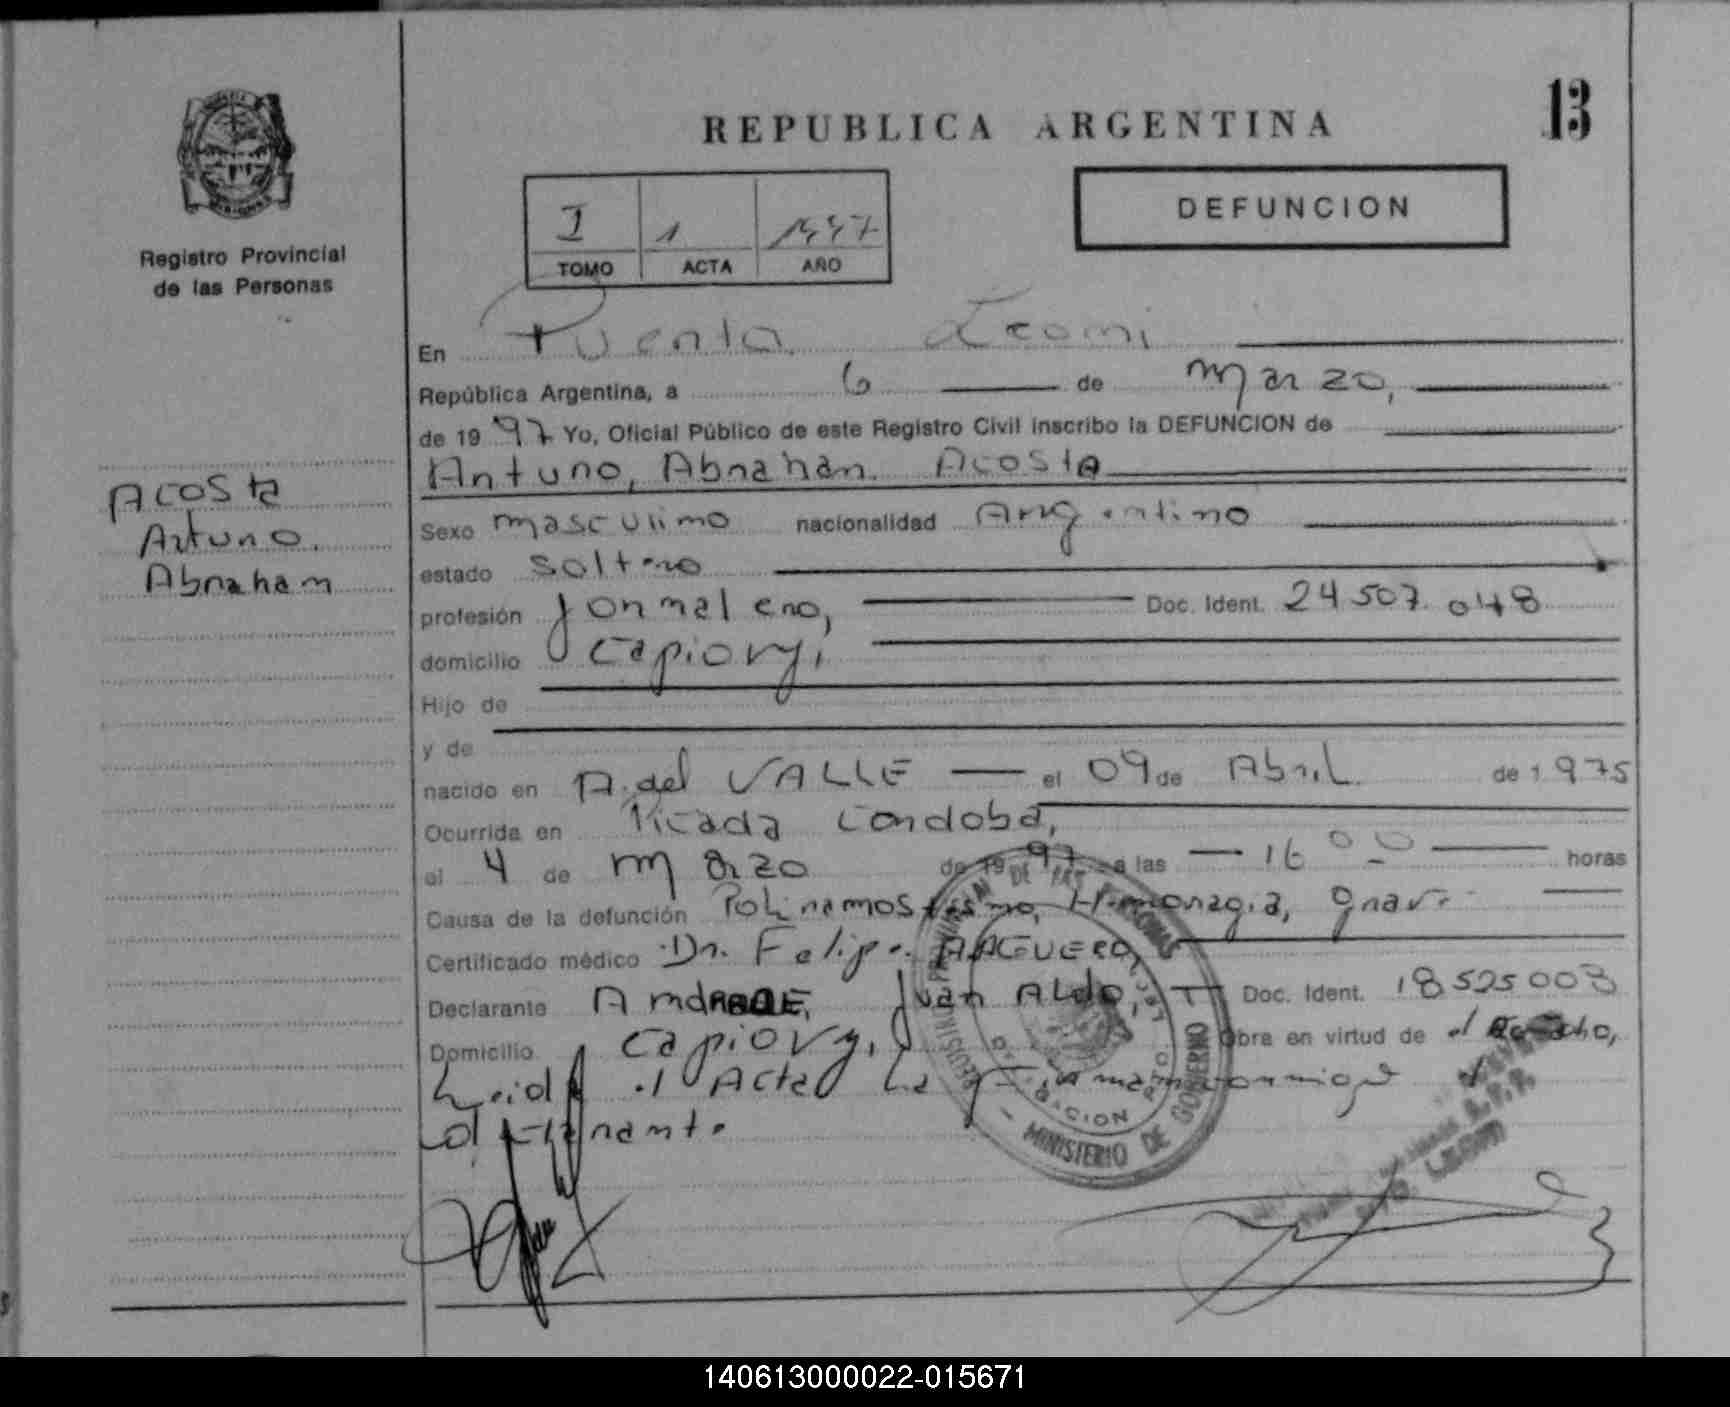 13
REPUBLICA ARGENTINA
DEFUNCION
I 1 1997
TOMO ACTA AÑO
Registro Provincial
de las Personas
Acosta
Arturo.
Abraham
En Puerto Leoni
República Argentina, a 6 de Marzo,
de 19 97 Yo, Oficial Público de este Registro Civil inscribo la DEFUNCION de
Arturo, Abrahan. Acosta
Sexo masculino nacionalidad Argentino
estado Soltero
profesión Jornalero, Doc. Ident. 24507.048
domicilio Capiovy,
Hijo de
y de
nacido en A. del VALLE el 09 de Abril de 1975
Ocurrida en Picada Cordoba,
el 4 de Marzo de 19 97 a las 16 00 horas
Causa de la defunción Hemorragia, grave
Certificado médico Dr. Felipe AAGUERO,
Declarante Juan Aldo, Doc. Ident. 18525003
Domicilio Capiovy, Obra en virtud de el
Leida el Acta la conmigo
el
REGISTRO PROVINCIAL DE LAS PERSONAS
MINISTERIO DE GOBIERNO
140613000022-015671